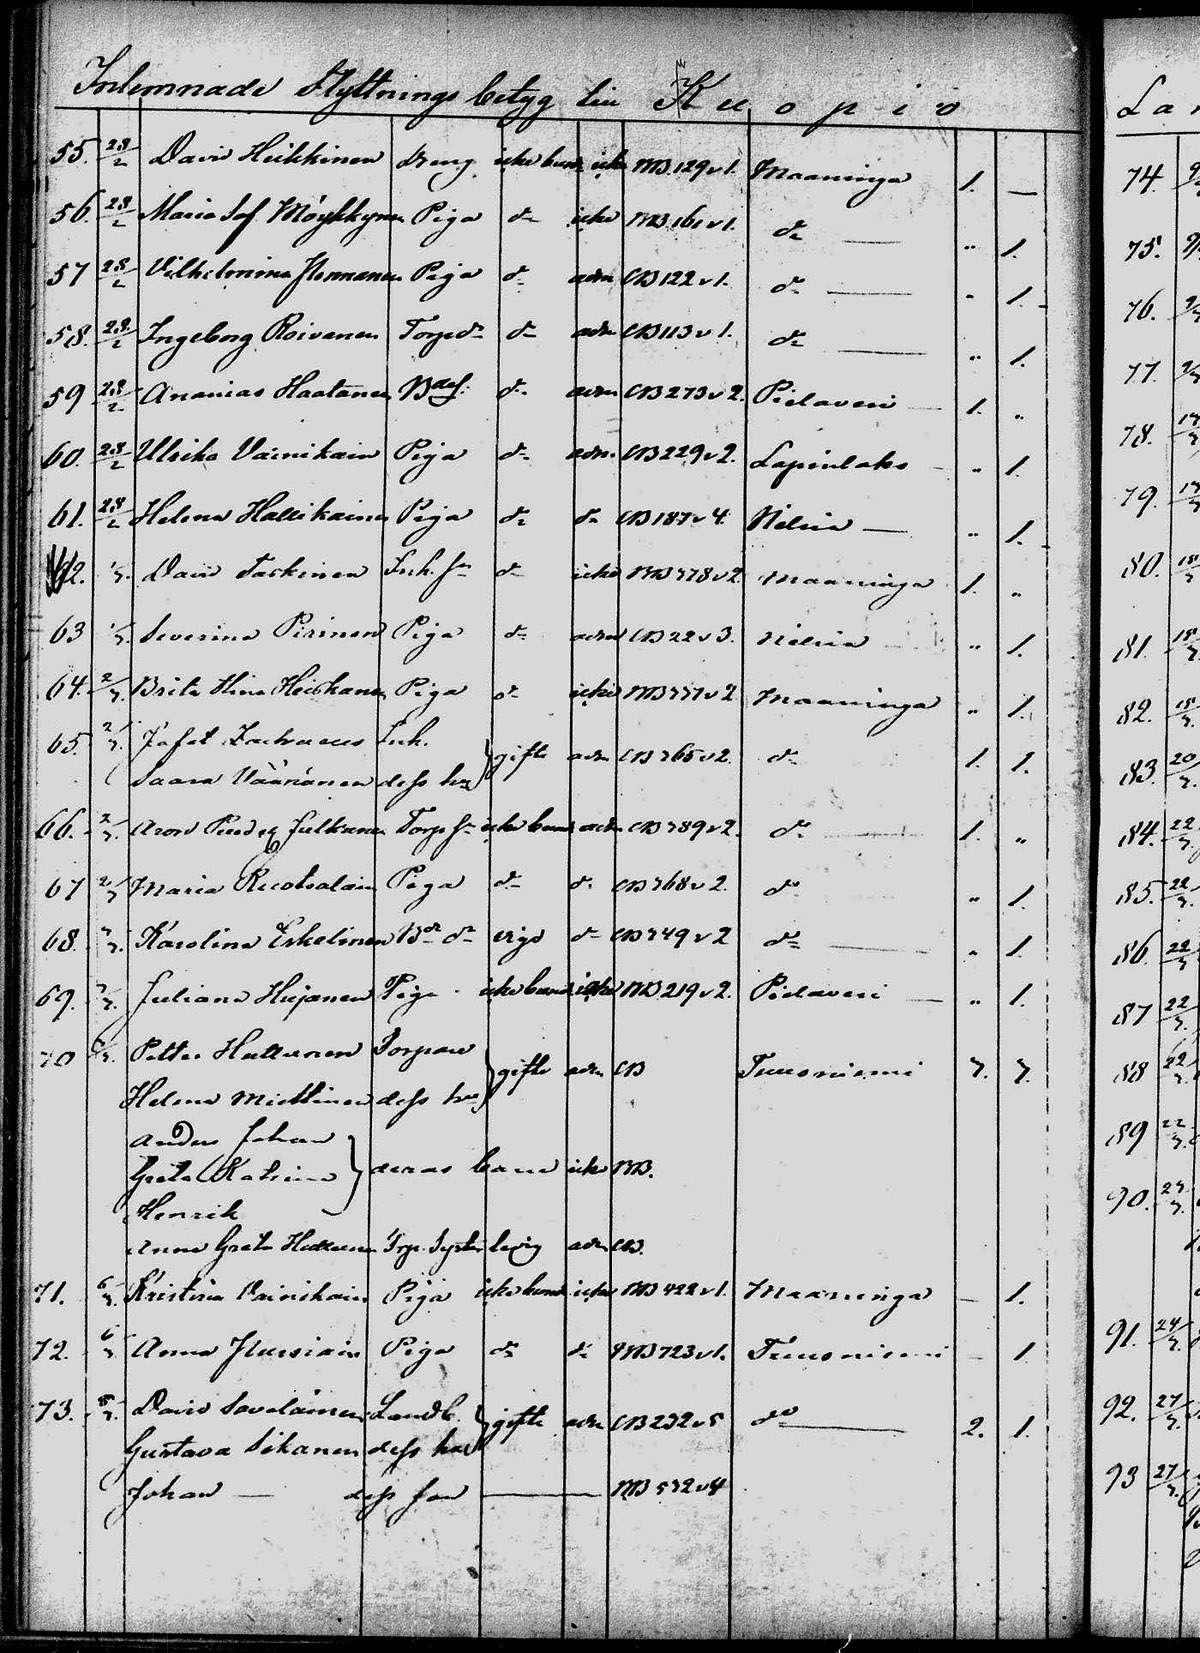 Inlemnade Flyttnings betyg till Kuopio
55. 28/2 David Heikkinen dreng icke bund. icke MB 129 v 1. Maaninga 1. —
56. 28/2 Maria Sof. Möykkynen Piga do icke MB 161 v 1. do — " 1.
57 28/2 Vilhelmina Piga do adm CB 122 v 1. do — " 1.
58. 28/2 Ingeborg Roivanen Torp dr do adm CB 113 v 1. do — " 1.
59 28/2 Ananias Haatanen do adm CB 273 v 2. Pielavesi — 1. "
60. 28/2 Ulrika Vainikain Piga do adm. CB 229 v 2. Lapinlaks — " 1.
61. 28/2 Helena Hallikainen Piga do do CB 187 v 4. Nilsiä — " 1.
62. 1/3. David Taskinen Inh. sn do icke MB 378 v 2 Maaninga 1. "
63 1/3. Severina Pirinen Piga do adm CB 22 v 3. Nilsiä — " 1.
64. 2/3. Brita Stina Heiskanen Piga do icke MB 337 v 2 Maaninga " 1.
65. 2/3. Jafet Zachaeus Inh. } gifte adm CB 365 v 2. do 1. 1.
Saara Väänänen dess hu
66. 2/3. Aron Julkunen Torp sn icke bund adm CB 389 v 2. do — 1. "
67 2/3 Maria Ruotsalain Piga do do CB 368 v 2. do " 1.
68. 3/3. Karolina Eskelinen Bde dr vigd do CB 349 v 2 do — " 1.
69. 3/3. Juliana Hujanen Piga icke bund icke MB 219 v 2. Pielavesi — " 1.
70 3/3. Petter Huttunen Torpare } gifte adm CB Tuusniemi 3. 3.
Helena Miettinen dess hu
Anders Johan
Greta Katrina } deras barn icke MB.
Henrik
Anna Greta Huttunen Torp. Syster ledig adm CB.
71. 6/3. Kristina Vainikain Piga icke bund icke MB 422 v 1. Maaninga — 1.
72. 6/3 Anna Piga do do MB 723 v 1. Tuusniemi — 1
73. 8/3. David Savolainen Landb. } gifte adm CB 232 v 5 do — 2. 1.
Gustava Sikanen dess hu
Johan — dess son — MB 532 v 4
La
74.
75.
76.
77.
78. 17/3
79. 17/3
80. 18/3
81. 18/3
82. 18/3
83. 20/3.
84. 22/3.
85. 22/3.
86. 22/3
87 22/3.
88 22/3.
89 22/3.
90. 23/3.
91. 24/3.
92. 27/3.
93 27/3.